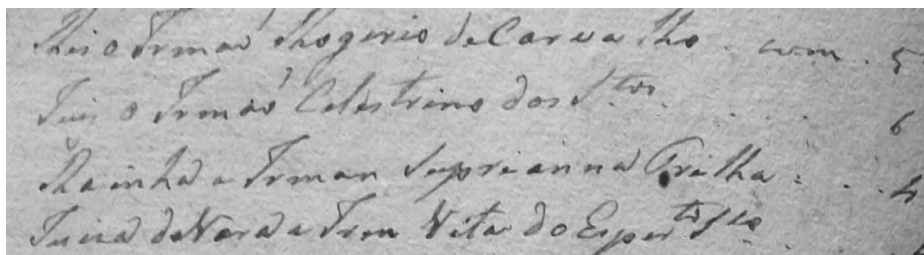 Rei o Irmaõ Rogerio de Carvalho . com . 5
Juis o Irmaõ Celestrino dos S.tos . . . 6
Rainha a Irman Suprianna Prilha . . . 4
Juiza da Vara a Irm Rita do Esper.to S.to